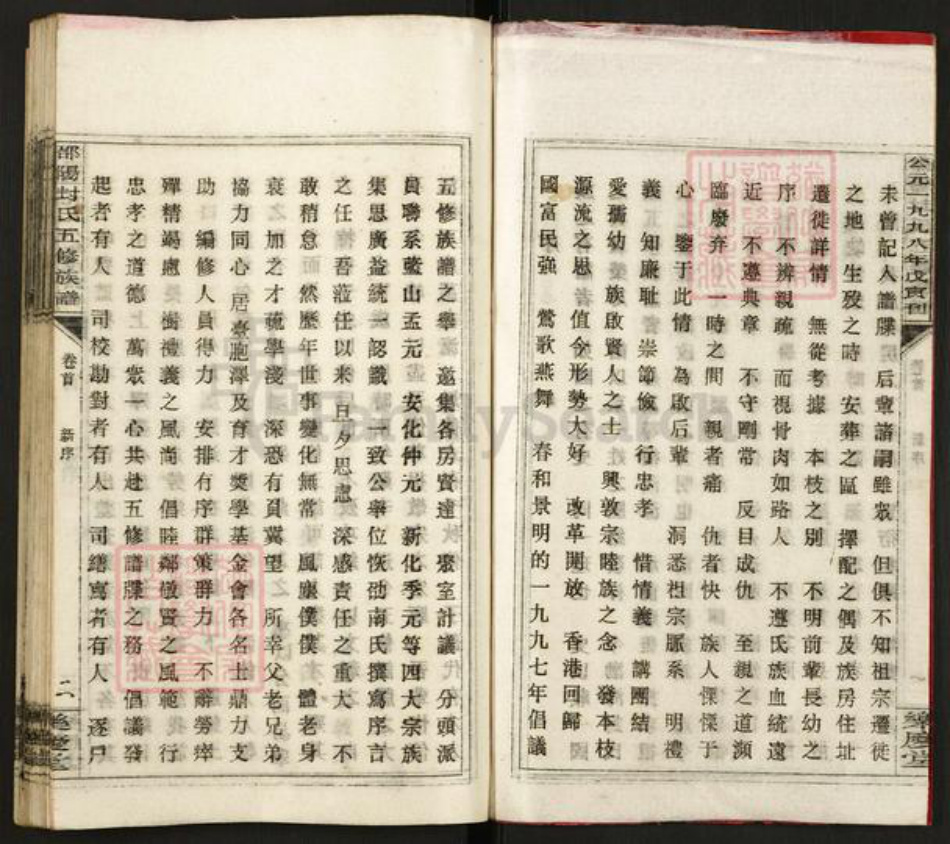 公元一九九八年戊寅刊
未曾記入譜牒 后輩諸嗣雖眾 但俱不知祖宗遷徙
之地 生歿之時 安葬之區 擇配之偶及族房住址
遷徙詳情 無從考據 本枝之別 不明前輩長幼之
序 不辨親疏 而視骨肉如路人 不遵氏族血統遠
近 不遵典章 不守剛常 反目成仇 至親之道瀕
臨廢弃 一時之間 親者痛 仇者快 族人慄慄于
心 鑒于此情 為啟后輩 洞悉祖宗脈系 明禮
義 知廉耻 崇節儉 行忠孝 惜情義 講團結
愛孺幼 族啟賢人之士 興敦宗睦族之念 發本枝
源流之思 值今形勢大好 改革開放 香港回歸
國富民強 鶯歌燕舞 春和景明的一九九七年倡議
五修族譜之舉 邀集各房賢達 聚室計議 分頭派
員聯系藍山孟元 安化仲元 新化季元等四大宗族
集思廣益統一認識 一致公舉位恢劭南氏撰寫序言
之任 吾蒞任以來 日夕思慮 深感責任之重大 不
敢稍怠 然歷年世事變化無常 風塵僕僕 體老身
衰 加之才疏學淺 深恐有負冀望 所幸父老兄弟
協力同心 居臺胞澤及育才獎學基金會各名士鼎力支
助 編修人員得力 安排有序 群策群力 不辭勞瘁
殫精竭慮 樹禮義之風尚 倡睦鄰敬賢之風範 行
忠孝之道德 上萬眾一心共赴五修譜牒之務 倡議發
起者有人 司校勘對者有人 司繕寫者有人 逐戶
邵陽封氏五修族譜
卷首
新序
二
FamilySearch